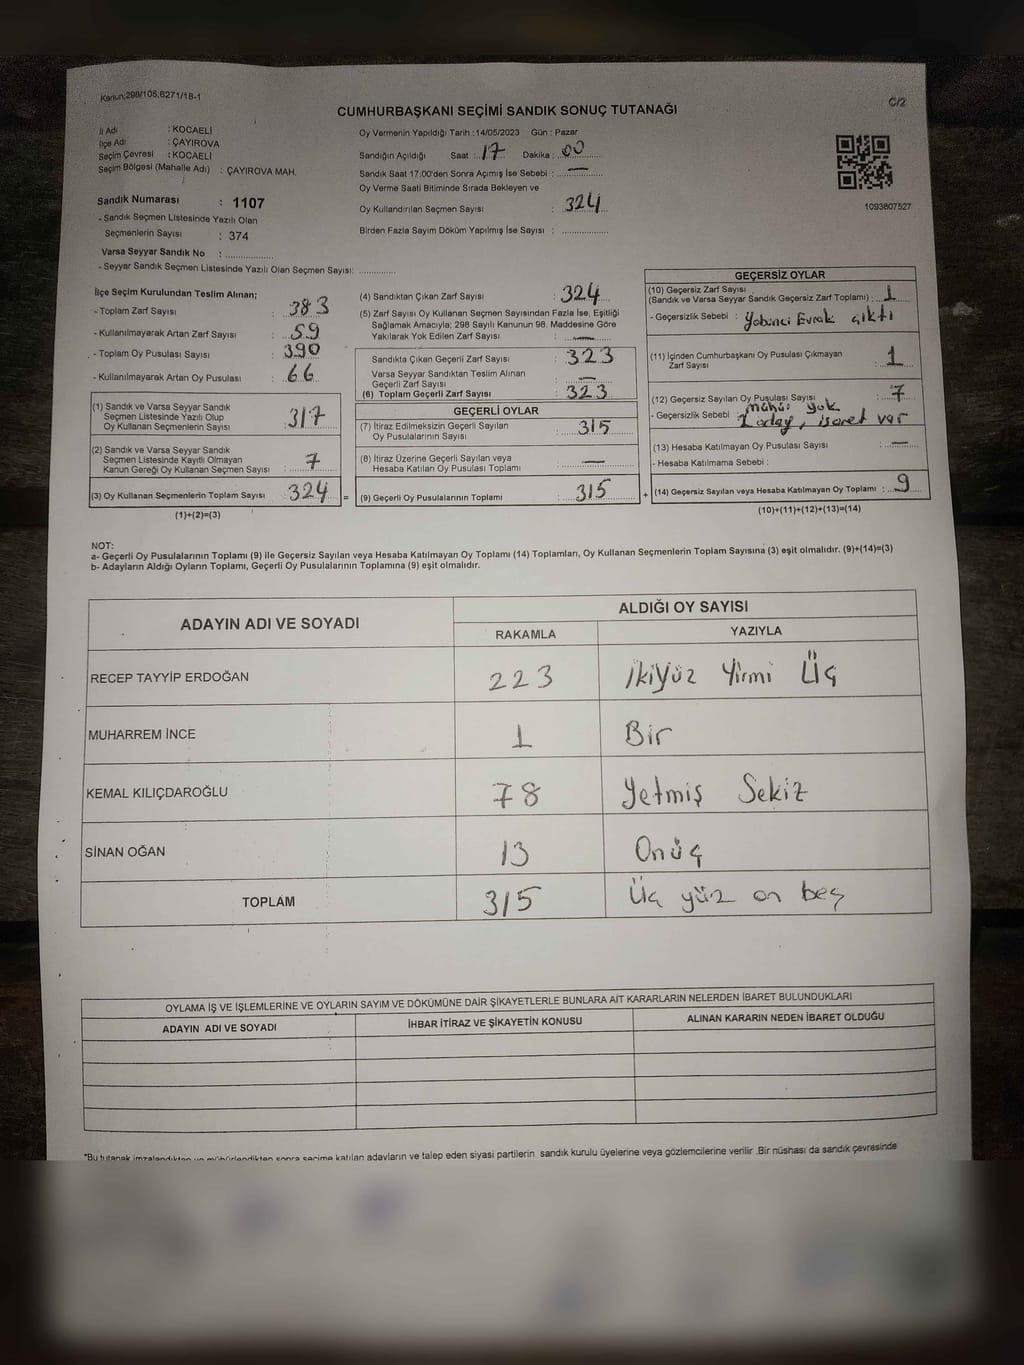 Kanun:298/105;6271/18-1
C/2
CUMHURBAŞKANI SEÇİMİ SANDIK SONUÇ TUTANAĞI
İl Adı : KOCAELİ
İlçe Adı : ÇAYIROVA
Seçim Çevresi : KOCAELİ
Seçim Bölgesi (Mahalle Adı) : ÇAYIROVA MAH.
Sandık Numarası : 1107
- Sandık Seçmen Listesinde Yazılı Olan
Seçmenlerin Sayısı : 374
Varsa Seyyar Sandık No : ...............
- Seyyar Sandık Seçmen Listesinde Yazılı Olan Seçmen Sayısı: ............
Oy Vermenin Yapıldığı Tarih : 14/05/2023 Gün : Pazar
Sandığın Açıldığı Saat : 17 Dakika : 00
Sandık Saat 17:00'den Sonra Açımış İse Sebebi : —
Oy Verme Saati Bitiminde Sırada Bekleyen ve
Oy Kullandırılan Seçmen Sayısı : 324
Birden Fazla Sayım Döküm Yapılmış İse Sayısı : ...............
1093807527
İlçe Seçim Kurulundan Teslim Alınan;
- Toplam Zarf Sayısı : 383
- Kullanılmayarak Artan Zarf Sayısı : 59
- Toplam Oy Pusulası Sayısı : 390
- Kullanılmayarak Artan Oy Pusulası : 66
(1) Sandık ve Varsa Seyyar Sandık
Seçmen Listesinde Yazılı Olup
Oy Kullanan Seçmenlerin Sayısı : 317
(2) Sandık ve Varsa Seyyar Sandık
Seçmen Listesinde Kayıtlı Olmayan
Kanun Gereği Oy Kullanan Seçmen Sayısı : 7
(3) Oy Kullanan Seçmenlerin Toplam Sayısı : 324 =
(1)+(2)=(3)
(4) Sandıktan Çıkan Zarf Sayısı : 324
(5) Zarf Sayısı Oy Kullanan Seçmen Sayısından Fazla İse, Eşitliği
Sağlamak Amacıyla; 298 Sayılı Kanunun 98. Maddesine Göre
Yakılarak Yok Edilen Zarf Sayısı : —
Sandıkta Çıkan Geçerli Zarf Sayısı : 323
Varsa Seyyar Sandıktan Teslim Alınan
Geçerli Zarf Sayısı : —
(6) Toplam Geçerli Zarf Sayısı : 323
GEÇERLİ OYLAR
(7) İtiraz Edilmeksizin Geçerli Sayılan
Oy Pusulalarının Sayısı : 315
(8) İtiraz Üzerine Geçerli Sayılan veya
Hesaba Katılan Oy Pusulası Toplamı : —
(9) Geçerli Oy Pusulalarının Toplamı : 315 +
GEÇERSİZ OYLAR
(10) Geçersiz Zarf Sayısı
(Sandık ve Varsa Seyyar Sandık Geçersiz Zarf Toplamı) : 1
- Geçersizlik Sebebi : Yabancı Evrak çıktı
(11) İçinden Cumhurbaşkanı Oy Pusulası Çıkmayan
Zarf Sayısı : 1
(12) Geçersiz Sayılan Oy Pusulası Sayısı : 7
- Geçersizlik Sebebi mühür yok
2 aday, işaret var
(13) Hesaba Katılmayan Oy Pusulası Sayısı : —
- Hesaba Katılmama Sebebi :
(14) Geçersiz Sayılan veya Hesaba Katılmayan Oy Toplamı : 9
(10)+(11)+(12)+(13)=(14)
NOT:
a- Geçerli Oy Pusulalarının Toplamı (9) ile Geçersiz Sayılan veya Hesaba Katılmayan Oy Toplamı (14) Toplamları, Oy Kullanan Seçmenlerin Toplam Sayısına (3) eşit olmalıdır. (9)+(14)=(3)
b- Adayların Aldığı Oyların Toplamı, Geçerli Oy Pusulalarının Toplamına (9) eşit olmalıdır.
ADAYIN ADI VE SOYADI ALDIĞI OY SAYISI
RAKAMLA YAZIYLA
RECEP TAYYİP ERDOĞAN 223 İkiyüz Yirmi Üç
MUHARREM İNCE 1 Bir
KEMAL KILIÇDAROĞLU 78 Yetmiş Sekiz
SİNAN OĞAN 13 Onüç
TOPLAM 315 Üç yüz on beş
OYLAMA İŞ VE İŞLEMLERİNE VE OYLARIN SAYIM VE DÖKÜMÜNE DAİR ŞİKAYETLERLE BUNLARA AİT KARARLARIN NELERDEN İBARET BULUNDUKLARI
ADAYIN ADI VE SOYADI İHBAR İTİRAZ VE ŞİKAYETİN KONUSU ALINAN KARARIN NEDEN İBARET OLDUĞU
*Bu tutanak imzalandıktan ve mühürlendikten sonra seçime katılan adayların ve talep eden siyasi partilerin sandık kurulu üyelerine veya gözlemcilerine verilir .Bir nüshası da sandık çevresinde